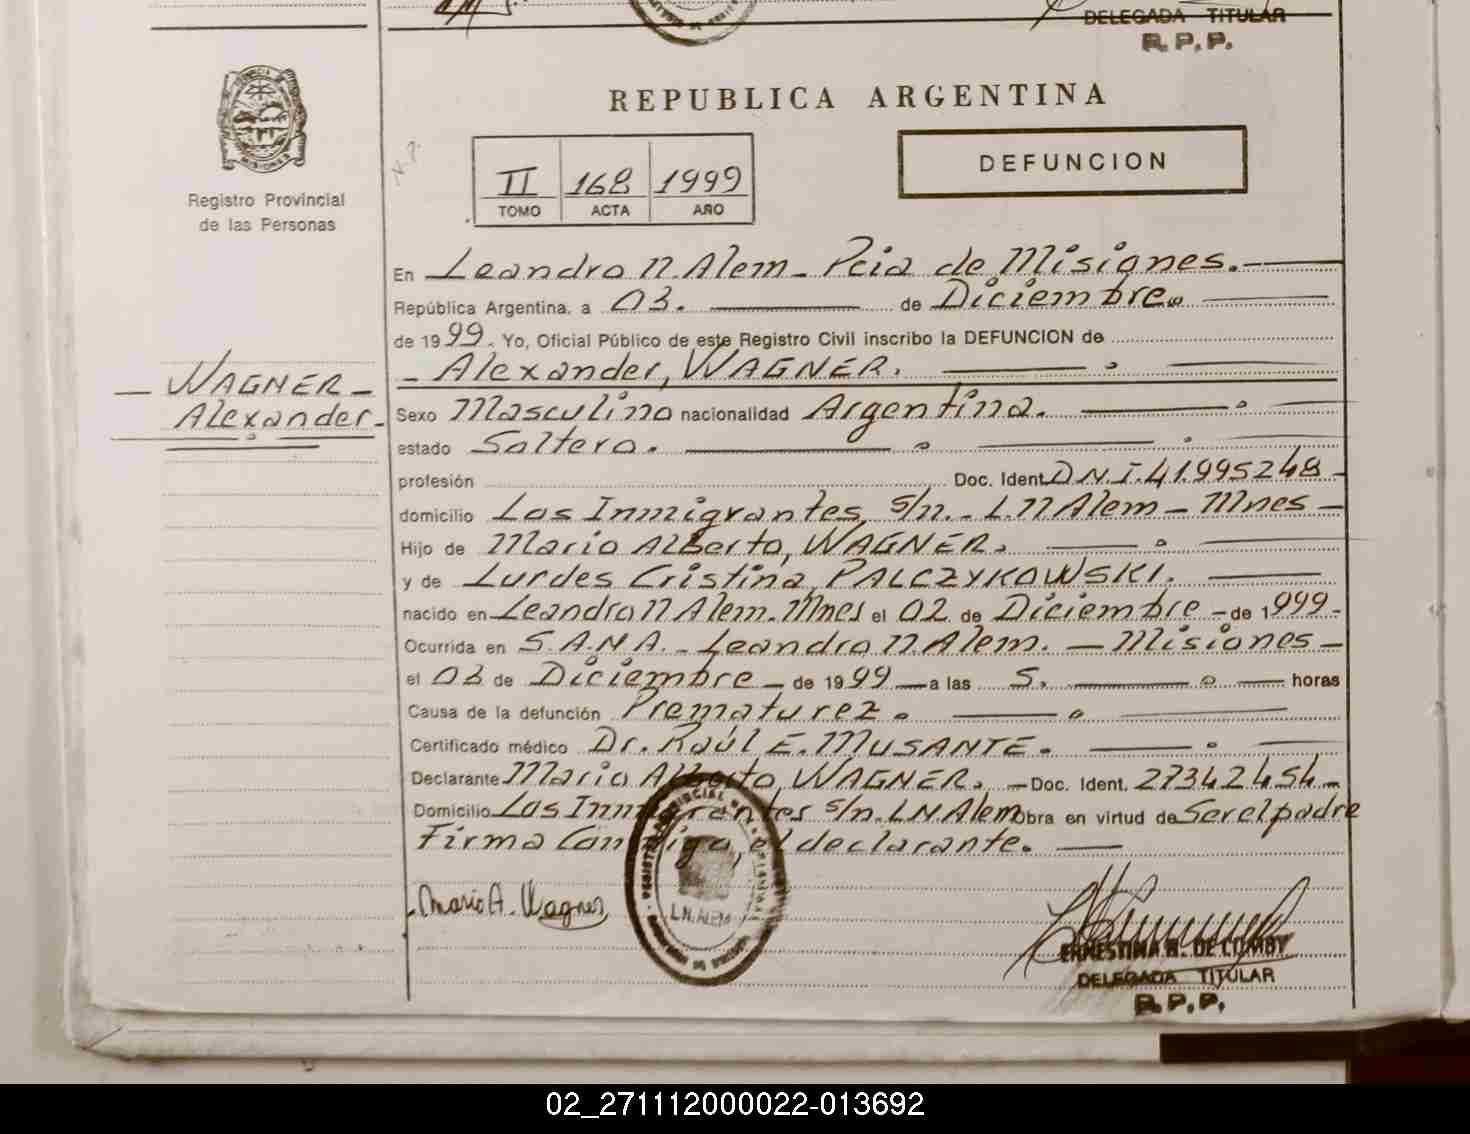 DELEGADA TITULAR
R.P.P.
REPUBLICA ARGENTINA
DEFUNCION
II 168 1999
TOMO ACTA AÑO
Registro Provincial
de las Personas
En Leandro N. Alem - Pcia de Misiones.-
República Argentina, a 03. de Diciembre.
de 1999. Yo, Oficial Público de este Registro Civil inscribo la DEFUNCION de
- Alexander, WAGNER.
- WAGNER -
Alexander.
Sexo Masculino nacionalidad Argentina.
estado Soltero.
profesión Doc. Ident. D.N.I. 41.995248-
domicilio Los Inmigrantes, s/n.- L.N Alem - Mnes -
Hijo de Mario Alberto, WAGNER.
y de Lurdes Cristina, PALCZYKOWSKI.
nacido en Leandro N Alem. Mnes el 02 de Diciembre - de 1999-
Ocurrida en S.A.N.A.- Leandro N. Alem. - Misiones -
el 03 de Diciembre - de 1999 - a las 5. horas
Causa de la defunción Prematurez.
Certificado médico Dr. Raúl E. MUSANTE.
Declarante Mario Alberto, WAGNER. - Doc. Ident. 27342454-
Domicilio Los Inmigrantes s/n. LN Alem Obra en virtud de Ser el padre
Firma Conmigo, el declarante.
Mario A. Wagner
L.N. ALEM
ERNESTINA DE
DELEGADA TITULAR
R.P.P.
02_271112000022-013692